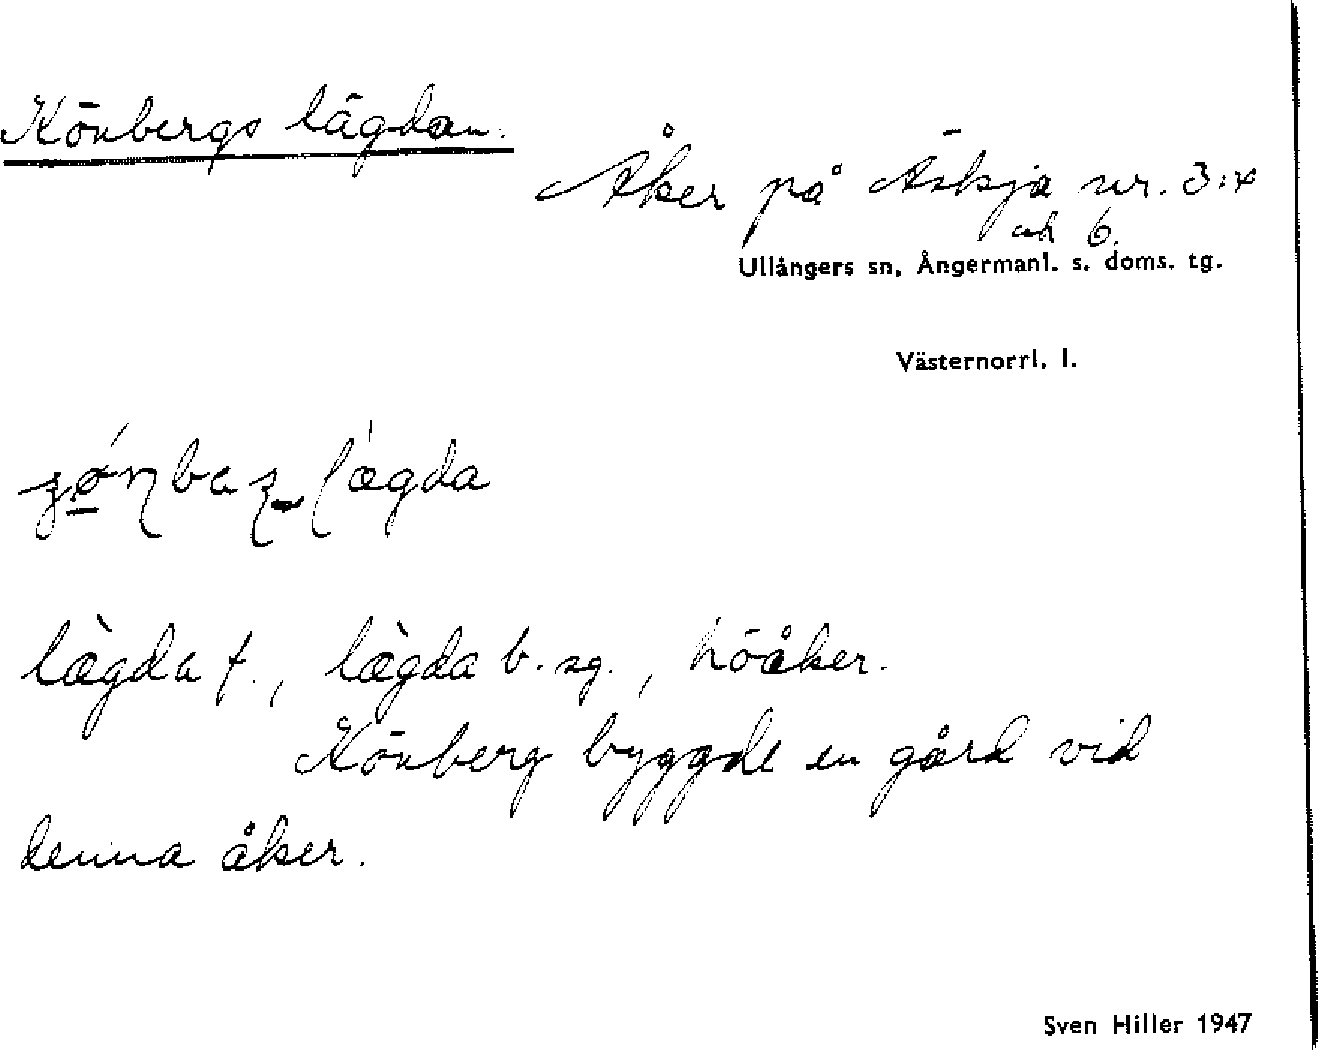 Könbergs lägdan.
Åker på Äskja nr. 3:4
och 6.
Ullångers sn, Ångermanl. s. doms. tg.
Västernorrl. l.
lægda
læ̀gda f., læ̀gda b. sg., höåker.
Könberg byggde en gård vid
denna åker.
Sven Hiller 1947